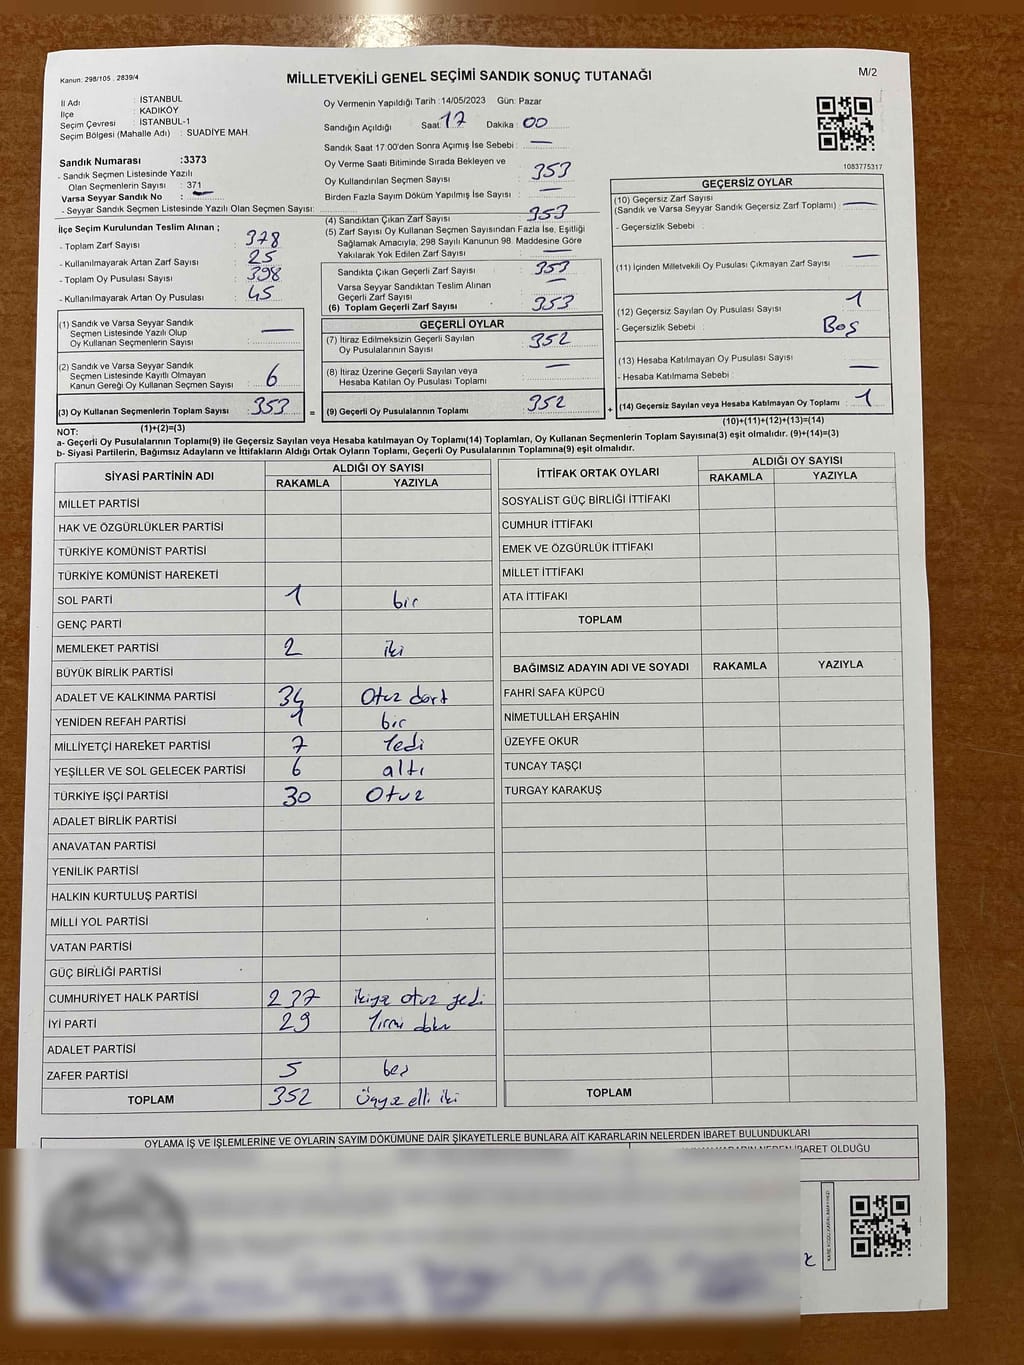 Kanun: 298/105 , 2839/4
MİLLETVEKİLİ GENEL SEÇİMİ SANDIK SONUÇ TUTANAĞI
M/2
İl Adı : İSTANBUL
İlçe : KADIKÖY
Seçim Çevresi : İSTANBUL-1
Seçim Bölgesi (Mahalle Adı) : SUADİYE MAH.
Oy Vermenin Yapıldığı Tarih :14/05/2023 Gün: Pazar
Sandığın Açıldığı Saat: 17 Dakika : 00
Sandık Saat 17:00'den Sonra Açımış İse Sebebi : —
Oy Verme Saati Bitiminde Sırada Bekleyen ve
Oy Kullandırılan Seçmen Sayısı : 353
Birden Fazla Sayım Döküm Yapılmış İse Sayısı : —
1083775317
Sandık Numarası :3373
- Sandık Seçmen Listesinde Yazılı
Olan Seçmenlerin Sayısı : 371
Varsa Seyyar Sandık No : —
- Seyyar Sandık Seçmen Listesinde Yazılı Olan Seçmen Sayısı:
İlçe Seçim Kurulundan Teslim Alınan ;
- Toplam Zarf Sayısı : 378
- Kullanılmayarak Artan Zarf Sayısı : 25
- Toplam Oy Pusulası Sayısı : 398
- Kullanılmayarak Artan Oy Pusulası : 45
(1) Sandık ve Varsa Seyyar Sandık
Seçmen Listesinde Yazılı Olup
Oy Kullanan Seçmenlerin Sayısı : —
(2) Sandık ve Varsa Seyyar Sandık
Seçmen Listesinde Kayıtlı Olmayan
Kanun Gereği Oy Kullanan Seçmen Sayısı : 6
(3) Oy Kullanan Seçmenlerin Toplam Sayısı : 353 =
(1)+(2)=(3)
(4) Sandıktan Çıkan Zarf Sayısı : 353
(5) Zarf Sayısı Oy Kullanan Seçmen Sayısından Fazla İse, Eşitliği
Sağlamak Amacıyla, 298 Sayılı Kanunun 98. Maddesine Göre
Yakılarak Yok Edilen Zarf Sayısı : —
Sandıkta Çıkan Geçerli Zarf Sayısı : 353
Varsa Seyyar Sandıktan Teslim Alınan
Geçerli Zarf Sayısı : —
(6) Toplam Geçerli Zarf Sayısı : 353
GEÇERLİ OYLAR
(7) İtiraz Edilmeksizin Geçerli Sayılan
Oy Pusulalarının Sayısı : 352
(8) İtiraz Üzerine Geçerli Sayılan veya
Hesaba Katılan Oy Pusulası Toplamı : —
(9) Geçerli Oy Pusulalarının Toplamı : 352 +
GEÇERSİZ OYLAR
(10) Geçersiz Zarf Sayısı :
(Sandık ve Varsa Seyyar Sandık Geçersiz Zarf Toplamı) —
- Geçersizlik Sebebi :
(11) İçinden Milletvekili Oy Pusulası Çıkmayan Zarf Sayısı : —
(12) Geçersiz Sayılan Oy Pusulası Sayısı : 1
- Geçersizlik Sebebi : Boş
(13) Hesaba Katılmayan Oy Pusulası Sayısı :
- Hesaba Katılmama Sebebi : —
(14) Geçersiz Sayılan veya Hesaba Katılmayan Oy Toplamı : 1
(10)+(11)+(12)+(13)=(14)
NOT:
a- Geçerli Oy Pusulalarının Toplamı(9) ile Geçersiz Sayılan veya Hesaba katılmayan Oy Toplamı(14) Toplamları, Oy Kullanan Seçmenlerin Toplam Sayısına(3) eşit olmalıdır. (9)+(14)=(3)
b- Siyasi Partilerin, Bağımsız Adayların ve İttifakların Aldığı Oyların Toplamı, Geçerli Oy Pusulalarının Toplamına(9) eşit olmalıdır.
SİYASİ PARTİNİN ADI
ALDIĞI OY SAYISI
RAKAMLA YAZIYLA
MİLLET PARTİSİ
HAK VE ÖZGÜRLÜKLER PARTİSİ
TÜRKİYE KOMÜNİST PARTİSİ
TÜRKİYE KOMÜNİST HAREKETİ
SOL PARTİ 1 bir
GENÇ PARTİ
MEMLEKET PARTİSİ 2 iki
BÜYÜK BİRLİK PARTİSİ
ADALET VE KALKINMA PARTİSİ 34 Otuz dört
YENİDEN REFAH PARTİSİ 1 bir
MİLLİYETÇİ HAREKET PARTİSİ 7 Yedi
YEŞİLLER VE SOL GELECEK PARTİSİ 6 altı
TÜRKİYE İŞÇİ PARTİSİ 30 Otuz
ADALET BİRLİK PARTİSİ
ANAVATAN PARTİSİ
YENİLİK PARTİSİ
HALKIN KURTULUŞ PARTİSİ
MİLLİ YOL PARTİSİ
VATAN PARTİSİ
GÜÇ BİRLİĞİ PARTİSİ
CUMHURİYET HALK PARTİSİ 237 ikiyz otuz yedi
İYİ PARTİ 29 Yirmi dokuz
ADALET PARTİSİ
ZAFER PARTİSİ 5 beş
TOPLAM 352 Üçyüz elli iki
İTTİFAK ORTAK OYLARI
ALDIĞI OY SAYISI
RAKAMLA YAZIYLA
SOSYALİST GÜÇ BİRLİĞİ İTTİFAKI
CUMHUR İTTİFAKI
EMEK VE ÖZGÜRLÜK İTTİFAKI
MİLLET İTTİFAKI
ATA İTTİFAKI
TOPLAM
BAĞIMSIZ ADAYIN ADI VE SOYADI RAKAMLA YAZIYLA
FAHRİ SAFA KÜPCÜ
NİMETULLAH ERŞAHİN
ÜZEYFE OKUR
TUNCAY TAŞÇI
TURGAY KARAKUŞ
TOPLAM
OYLAMA İŞ VE İŞLEMLERİNE VE OYLARIN SAYIM DÖKÜMÜNE DAİR ŞİKAYETLERLE BUNLARA AİT KARARLARIN NELERDEN İBARET BULUNDUKLARI
İBARET OLDUĞU